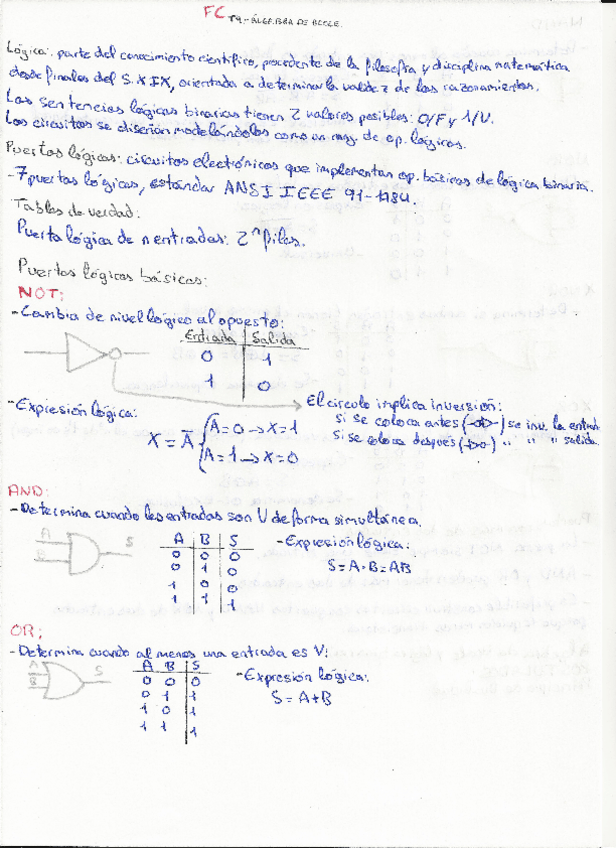 FC T4.-ÁLGEBRA DE BOOLE.
Lógica: parte del conocimiento científico, procedente de la filosofía y disciplina matemática
desde finales del S.XIX, orientada a determinar la validez de los razonamientos.
Las sentencias lógicas binarias tienen 2 valores posibles: 0/F y 1/V.
Los circuitos se diseñan modelándolos como un conj. de op. lógicos.
Puertas lógicas: circuitos electrónicos que implementan op. básicas de lógica binaria.
-7 puertas lógicas, estándar ANSI IEEE 91-1984.
Tablas de verdad:
Puerta lógica de n entradas: 2^n filas.
Puertas lógicas básicas:
NOT:
-Cambia de nivel lógico al opuesto:
Entrada Salida
0 1
1 0
-Expresión lógica:
X = Ā
A=0 → X=1
A=1 → X=0
El círculo implica inversión:
si se coloca antes ( ) se inv. la entrada
si se coloca después ( ) " " " salida.
AND:
-Determina cuando las entradas son V de forma simultánea.
A B S
A B S
0 0 0
0 1 0
1 0 0
1 1 1
-Expresión lógica:
S=A·B=AB
OR:
-Determina cuando al menos una entrada es V:
A B S
A B S
0 0 0
0 1 1
1 0 1
1 1 1
-Expresión lógica:
S=A+B